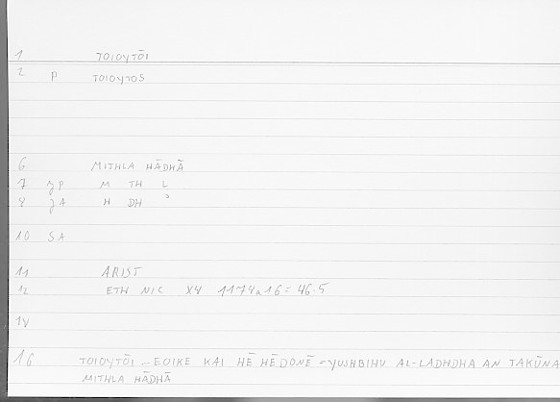 1 TOIOYTŌI
2 P TOIOYTOS
6 MITHLA HĀDHĀ
7 JP M TH L
8 JA H DH ɔ
10 SA
11 ARIST
12 ETH NIC X4 1174a16 = 46.5
14
16 TOIOYTŌI – EOIKE KAI HĒ HĒDONĒ – YUSHBIHU AL-LADHDHA AN TAKŪNA
MITHLA HĀDHĀ